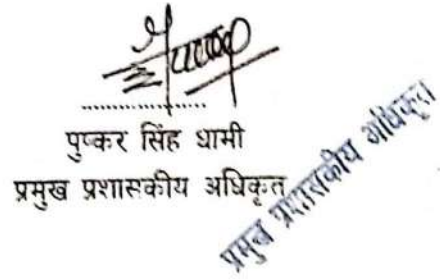 ....................
पुष्कर सिंह धामी
प्रमुख प्रशासकीय अधिकृत
प्रमुख प्रशासकीय अधिकृत